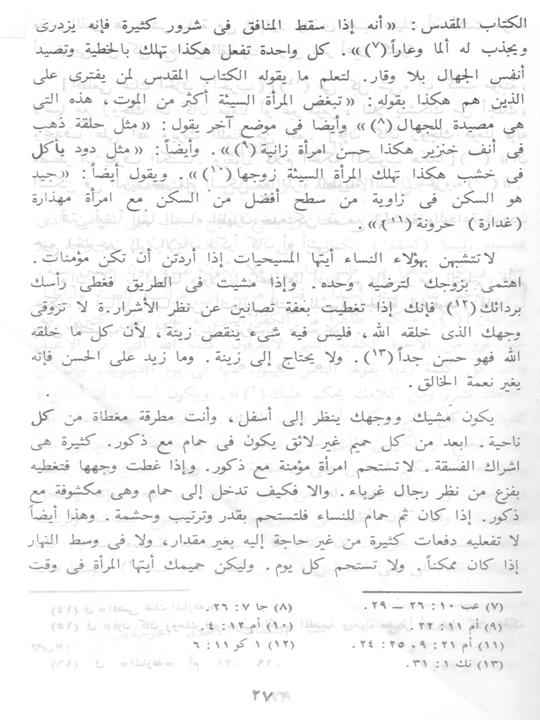 الكتاب المقدس : « أنه إذا سقط المنافق فى شرور كثيرة فإنه يزدرى
ويجذب له ألما وعاراً(٧)» . كل واحدة تفعل هكذا تهلك بالخطية وتصيد
أنفس الجهال بلا وقار . لتعلم ما يقوله الكتاب المقدس لمن يفترى على
الذين هم هكذا بقوله : « تبغض المرأة السيئة أكثر من الموت ، هذه التى
هى مصيدة للجهال(٨)» وأيضا فى موضع آخر يقول : « مثل حلقة ذهب
فى أنف خنزير هكذا حسن امرأة زانية(٩)» . وأيضاً : « مثل دود يأكل
فى خشب هكذا تهلك المرأة السيئة زوجها(١٠)» . ويقول أيضاً : « جيد
هو السكن فى زاوية من سطح أفضل من السكن مع امرأة مهذارة
( غدارة ) حرونة(١١)» .
لا تتشبهن بهؤلاء النساء أيتها المسيحيات إذا أردتن أن تكن مؤمنات .
اهتمى بزوجك لترضيه وحده . وإذا مشيت فى الطريق فغطى رأسك
بردائك(١٢) فإنك إذا تغطيت بعفة تصانين عن نظر الأشرار . ة لا تزوقى
وجهك الذى خلقه الله ، فليس فيه شىء ينقص زينة ، لأن كل ما خلقه
الله فهو حسن جداً(١٣) . ولا يحتاج إلى زينة . وما زيد على الحسن فإنه
يغير نعمة الخالق .
يكون مشيك ووجهك ينظر إلى أسفل ، وأنت مطرقة مغطاة من كل
ناحية . ابعد من كل حميم غير لائق يكون فى حمام مع ذكور . كثيرة هى
اشراك الفسقة . لا تستحم امرأة مؤمنة مع ذكور . وإذا غطت وجهها فتغطيه
بفزع من نظر رجال غرباء . والا فكيف تدخل إلى حمام وهى مكشوفة مع
ذكور . إذا كان ثم حمام للنساء فلتستحم بقدر وترتيب وحشمة . وهذا أيضاً
لا تفعليه دفعات كثيرة من غير حاجة إليه بغير مقدار ، ولا فى وسط النهار
إذا كان ممكناً . ولا تستحم كل يوم . وليكن حميمك أيتها المرأة فى وقت
(٧) عب ١٠ : ٢٦ — ٢٩ . (٨) جا ٧ : ٢٦ .
(٩) أم ١١ : ٢٢ . (١٠) أم ١٢ : ٤ .
(١١) أم ٢١ : ٩ ، ٢٥ : ٢٤ . (١٢) ١ كو ١١ : ٦
(١٣) تك ١ : ٣١ .
٢٧